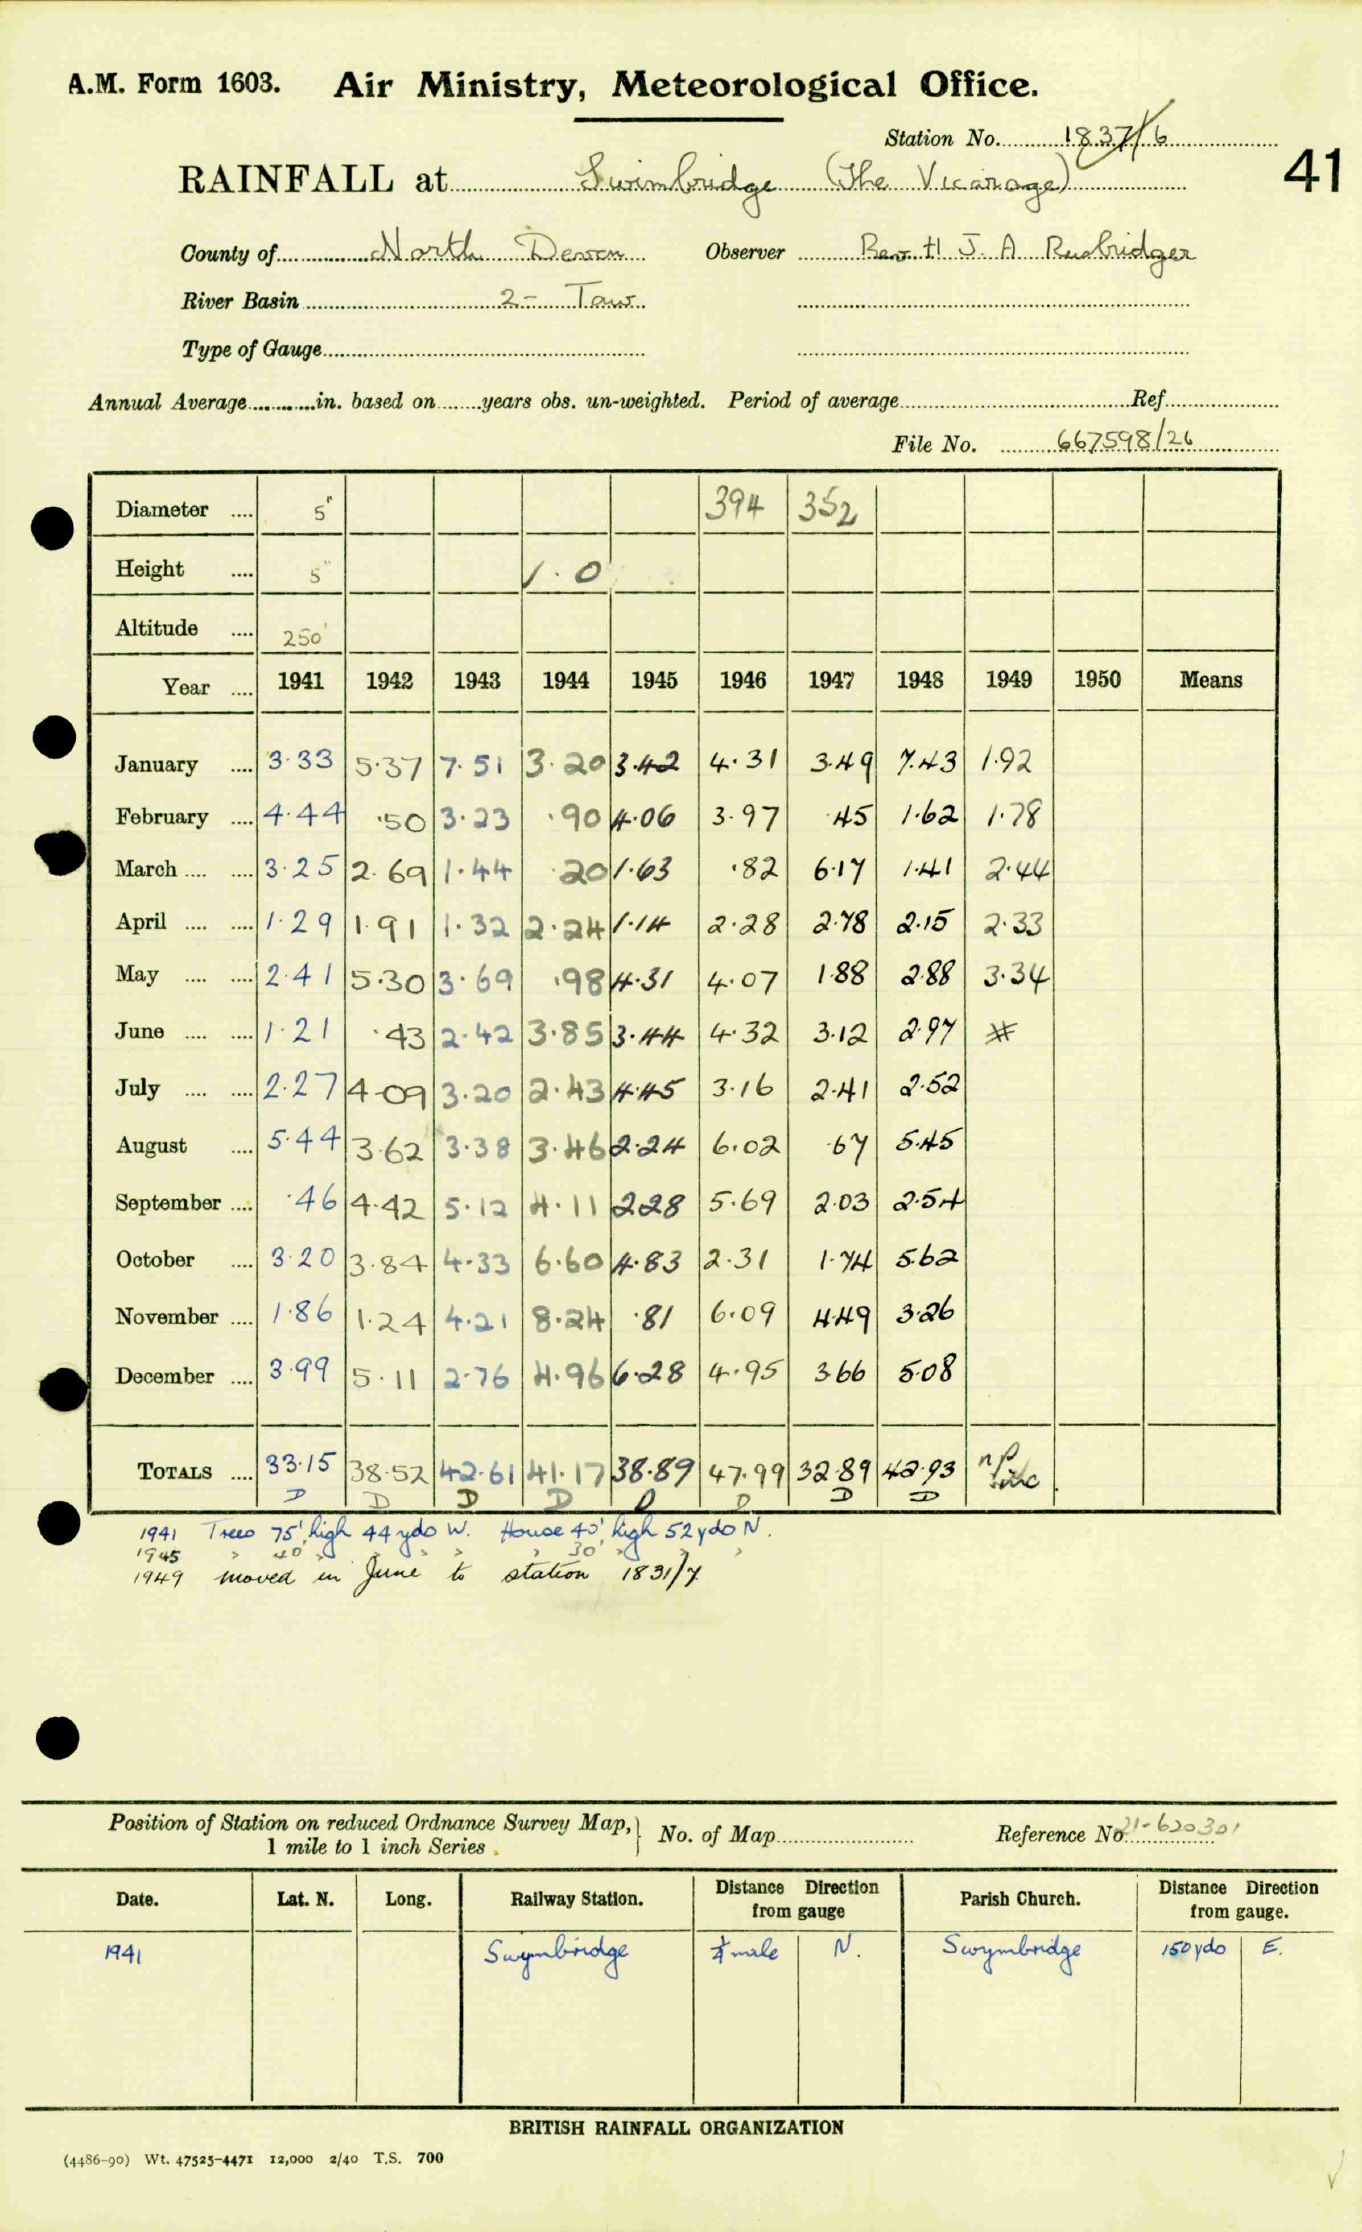 A.M. Form 1603. Air Ministry, Meteorological Office.
Station No. 1837/6
41
RAINFALL at Swimbridge (The Vicarage)
County of North Devon Observer Rev. H J. A Rusbridger
River Basin 2- Taw
Type of Gauge
Annual Average in. based on years obs. un-weighted. Period of average Ref
File No. 667598/26
Diameter 5" 394 352
Height 5" 1.0
Altitude 250'
Year 1941 1942 1943 1944 1945 1946 1947 1948 1949 1950 Means
January 3.33 5.37 7.51 3.20 3.42 4.31 3.49 7.43 1.92
February 4.44 .50 3.23 .90 4.06 3.97 .45 1.62 1.78
March 3.25 2.69 1.44 .20 1.63 .82 6.17 1.41 2.44
April 1.29 1.91 1.32 2.24 1.14 2.28 2.78 2.15 2.33
May 2.41 5.30 3.69 .98 4.31 4.07 1.88 2.88 3.34
June 1.21 .43 2.42 3.85 3.44 4.32 3.12 2.97 *
July 2.27 4.09 3.20 2.43 4.45 3.16 2.41 2.52
August 5.44 3.62 3.38 3.46 2.24 6.02 .67 5.45
September .46 4.42 5.12 4.11 2.28 5.69 2.03 2.54
October 3.20 3.84 4.33 6.60 4.83 2.31 1.74 5.62
November 1.86 1.24 4.21 8.24 .81 6.09 4.49 3.26
December 3.99 5.11 2.76 4.96 6.28 4.95 3.66 5.08
TOTALS 33.15 38.52 42.61 41.17 38.89 47.99 32.89 42.93 np
D D D D D D D D
1941 Trees 75' high 44 yds W. House 40' high 52 yds N.
1945 " 40' " " " " 30' " " "
1949 moved in June to station 1831/7
Position of Station on reduced Ordnance Survey Map,
1 mile to 1 inch Series. No. of Map Reference No. 21-620301
Date. Lat. N. Long. Railway Station. Distance Direction from gauge Parish Church. Distance Direction from gauge.
1941 Swymbridge ¼ mile N. Swymbridge 150 yds E.
BRITISH RAINFALL ORGANIZATION
(4486-90) Wt. 47525-4471 12,000 2/40 T.S. 700